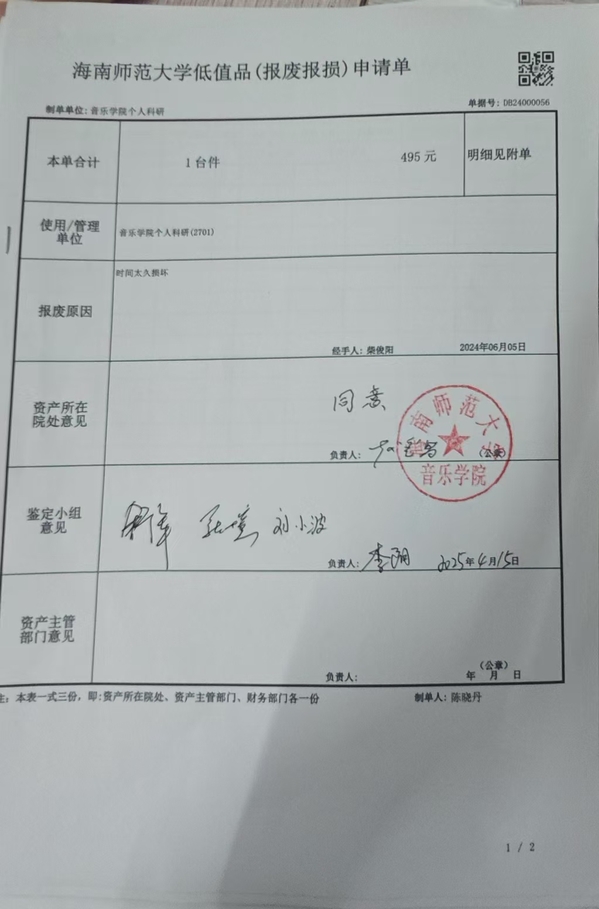 海南师范大学低值品(报废报损)申请单
制单单位: 音乐学院个人科研
单据号: DB24000056
本单合计
1台件
495 元
明细见附单
使用/管理
单位
音乐学院个人科研(2701)
报废原因
时间太久损坏
经手人: 柴俊阳
2024年06月05日
资产所在
院处意见
同意
负责人:
(公章)
海南师范大学
音乐学院
鉴定小组
意见
刘小波
负责人:
2025年4月15日
资产主管
部门意见
负责人:
(公章)
年 月 日
注: 本表一式三份, 即:资产所在院处、资产主管部门、财务部门各一份
制单人: 陈晓丹
1 / 2